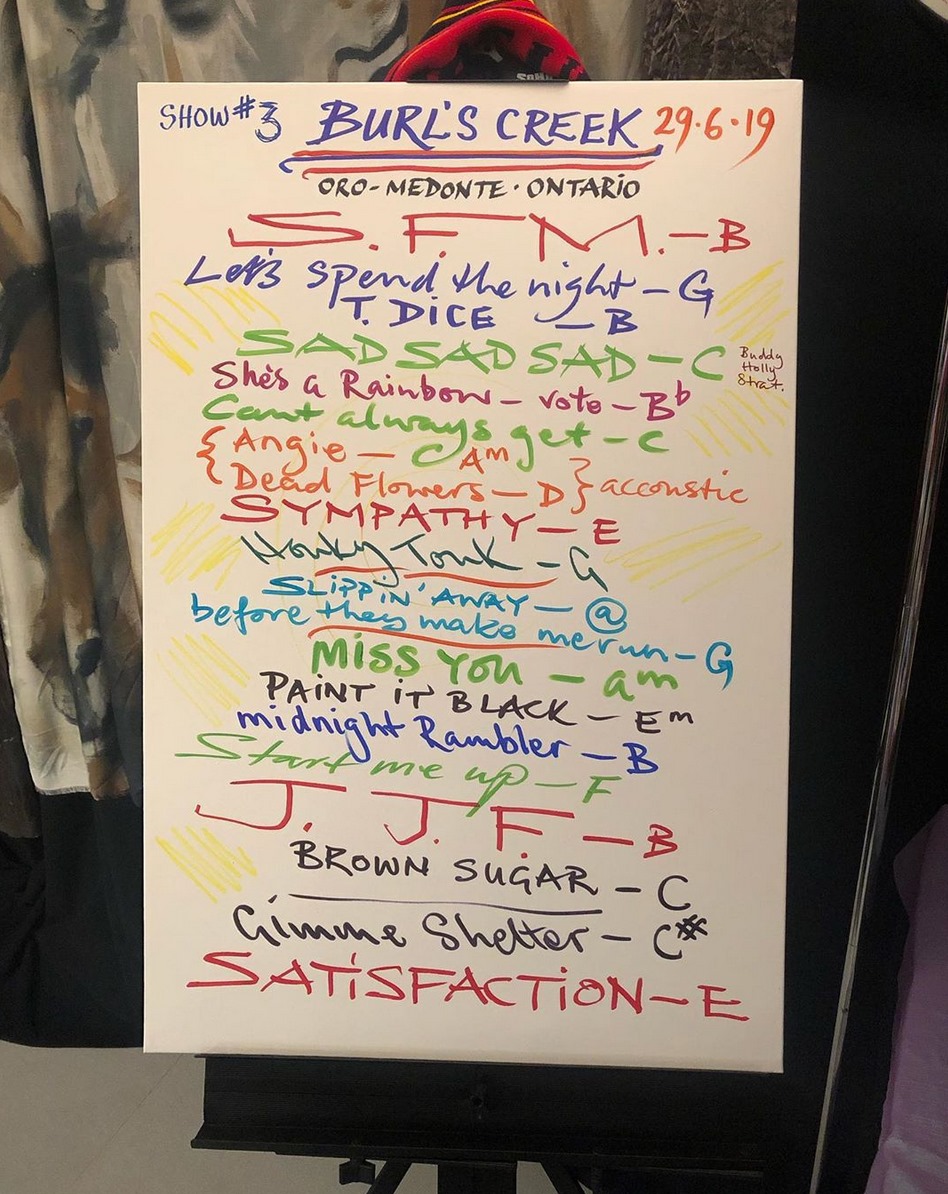 SHOW #3 BURL'S CREEK 29.6.19
ORO-MEDONTE · ONTARIO
S.F.M. – B
Let's spend the night – G
T. DICE – B
SAD SAD SAD – C
Buddy
Holly
Strat.
She's a Rainbow – vote – Bb
Cant always get – C
{ Angie – Am
{ Dead Flowers – D } accoustic
SYMPATHY – E
Honky Tonk – G
SLIPPIN' AWAY – @
before they make me run – G
MISS YOU – am
PAINT IT BLACK – Em
midnight Rambler – B
Start me up – F
J.J.F. – B
BROWN SUGAR – C
Gimme Shelter – C#
SATISFACTION – E